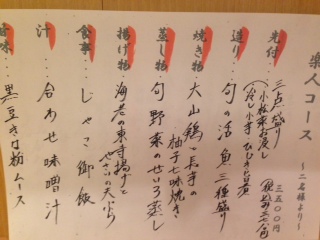 楽人コース 〜二名様より〜
三五〇〇円
先付… 三点盛り
造り… 旬の活魚三種盛り
焼き物… 大山鶏と長芋の
柚子七味焼き
蒸し物… 旬野菜のせいろ蒸し
揚げ物… 海老の東寺揚げと
やさいの天ぷら
食事… じゃこ御飯
汁… 合わせ味噌汁
甘味… 黒豆きな粉ムース